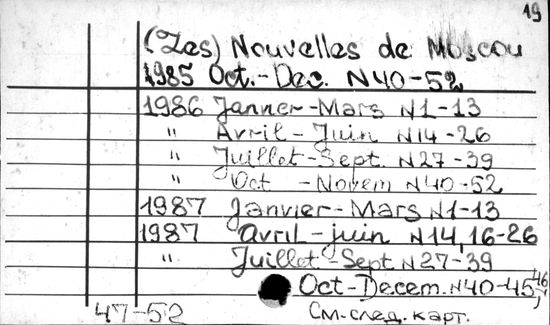 19
(Les) Nouvelles de Moscou
1985 Oct.-Dec. N40-52
1986 Janner-Mars N1-13
" Avril-Juin N14-26
" Juillet-Sept. N27-39
" Oct - Novem N40-52
1987 Janvier-Mars N1-13
1987 avril-juin N14,16-26
" Juillet-Sept N27-39
Oct-Decem. N40-45, 46
47-52 См.след.карт.